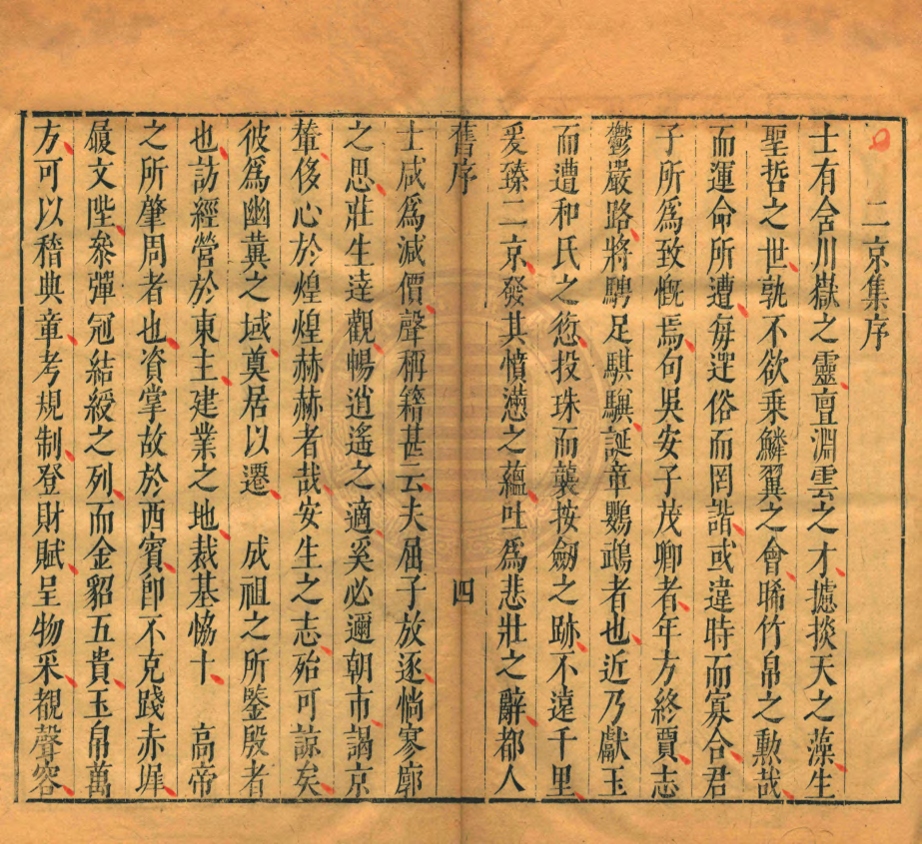 二京集序
士有含川嶽之靈亶淵雲之才攄掞天之藻生
聖哲之世孰不欲乘鱗翼之會晞竹帛之勳哉
而運命所遭每逕俗而罔諧或違時而寡合君
子所爲致慨焉句吳安子茂卿者年方終賈志
鬱嚴路將騁足騏驥誕章鸚鵡者也近乃獻玉
而遭和氏之愆投珠而蘘按劒之跡不遠千里
爰臻二京發其憤懣之蘊吐爲悲壯之辭都人
舊序
四
士咸爲減價聲稱籍甚云夫屈子放逐惝寥廓
之思莊生達觀暢逍遙之適奚必邇朝市謁京
輦侈心於煌煌赫赫者哉安生之志殆可諒矣
彼爲幽冀之域奠居以遷 成祖之所鑒殷者
也訪經營於東主建業之地裁基恊卜 高帝
之所肇周者也資掌故於西賓卽不克踐赤墀
履文陛叅彈冠結綬之列而金貂五貴玉帛萬
方可以稽典章考規制登財賦呈物采覩聲容